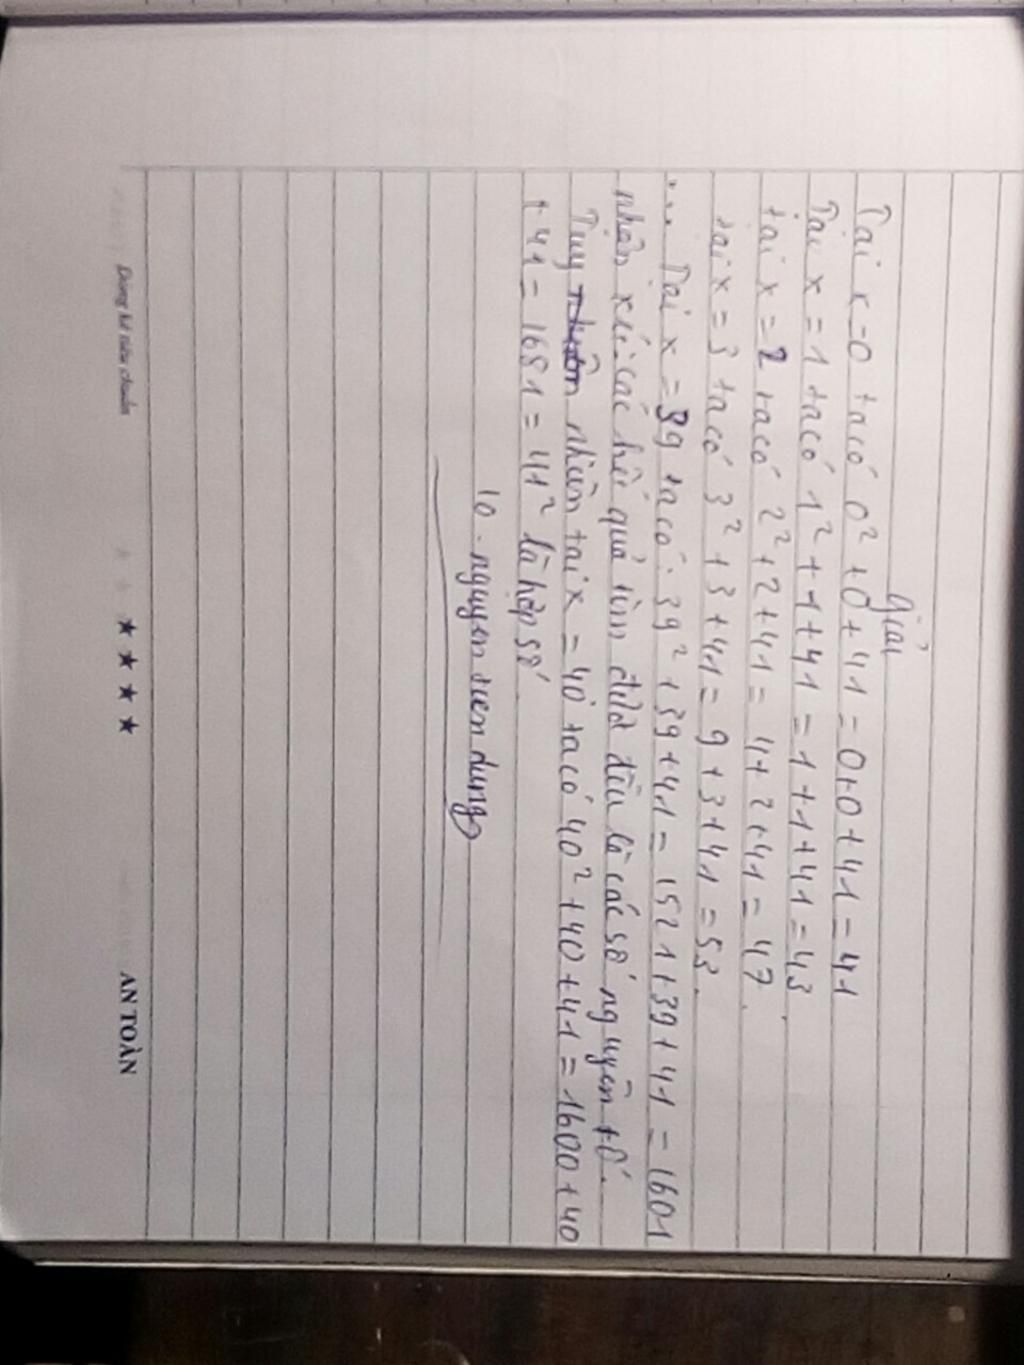 giải
Tại x=0 ta có 0² + 0 + 41 = 0+0+41 = 41
Tại x = 1 ta có 1² + 1 + 41 = 1 + 1 + 41 = 43
tại x = 2 ta có 2² + 2 + 41 = 4 + 2 + 41 = 47.
tại x = 3 ta có 3² + 3 + 41 = 9 + 3 + 41 = 53.
... Tại x = 39 ta có: 39² + 39 + 41 = 1521 + 39 + 41 = 1601
nhận xét: các kết quả tìm được đều là các số nguyên tố.
Tuy nhiên tại x = 40 ta có 40² + 40 + 41 = 1600 + 40
+ 41 = 1681 = 41² là hợp số.
10 - nguyen tien dung
Dòng kẻ tiêu chuẩn ★ ★ ★ ★ AN TOÀN